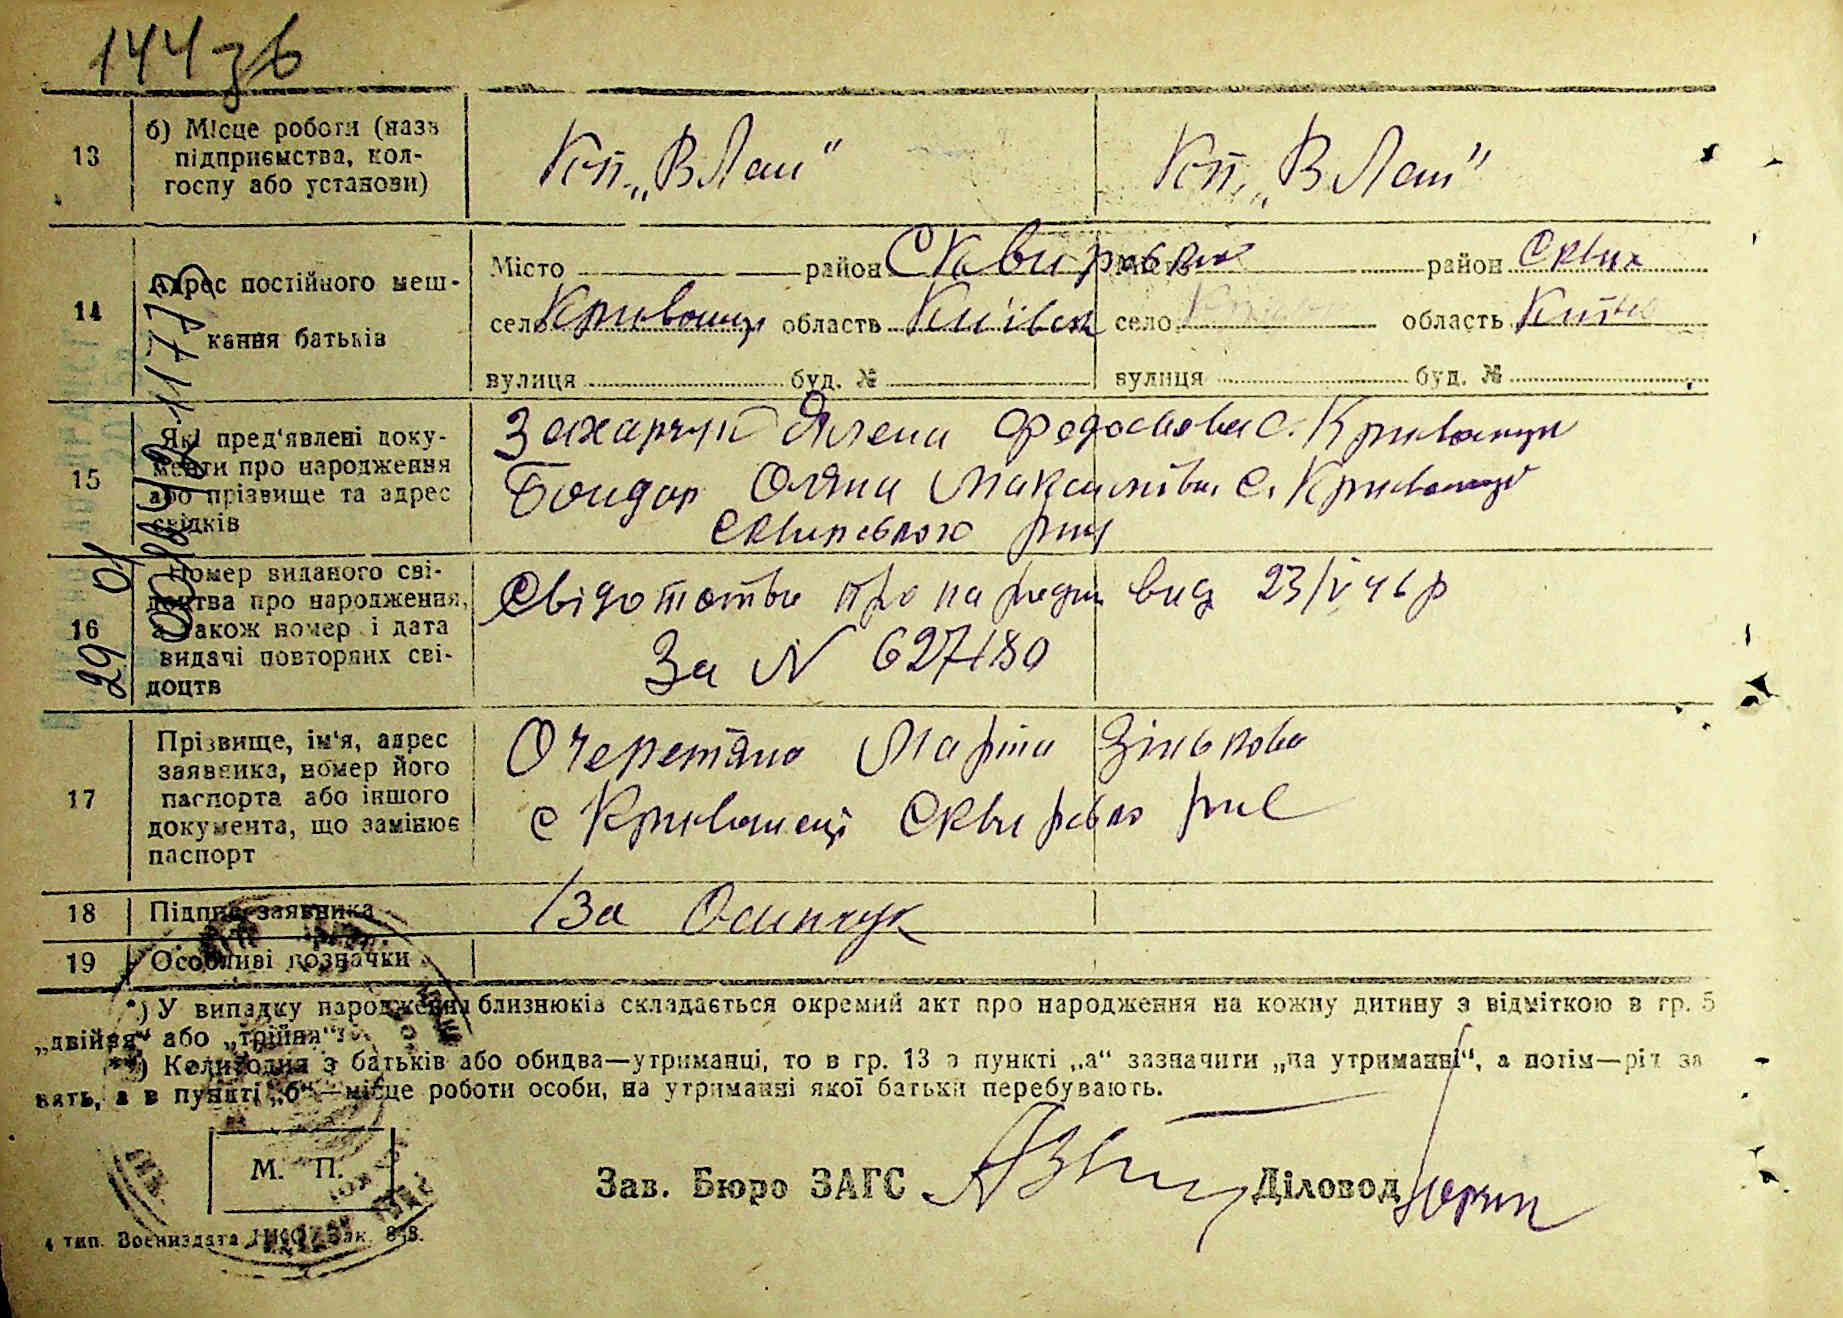 144зв
13 б) Місце роботи (назв
підприємства, кол-
госпу або установи)
Кгп. „В Лан" Кгп. „В Лан"
14 Адрес постійного меш-
кання батьків
Місто район Сквирськ район Сквих
село Кривошиї область Київськ село область Київ
вулиця буд. № вулиця буд. №
15 Які пред'явлені доку-
менти про народження
або прізвище та адрес
свідків
Захарчук Ялена Федосіова с. Кривошиї
Бондар Оляна Максимівна с. Кривошиї
Сквирського
16 Номер виданого сві-
доцтва про народження,
а також номер і дата
видачі повторних сві-
доцтв
Свідотство про вид 23/V 46 р
За N 627180
17 Прізвище, ім'я, адрес
заявника, номер його
паспорта або іншого
документа, що замінює
паспорт
Очеретяна Марія Зінькова
с Кривошеї
18 Підпис заявника
За Осипчук
19 Особливі позначки
*) У випадку народження близнюків складається окремий акт про народження на кожну дитину з відміткою в гр. 5
„двійня" або „трійня"
**) Коли один з батьків або обидва—утриманці, то в гр. 13 в пункті „а" зазначити „на утриманні", а потім—різ за
нять, а в пункті „б"—місце роботи особи, на утриманні якої батьки перебувають.
М. П.
Зав. Бюро ЗАГС Діловод
4 тип. Воениздата